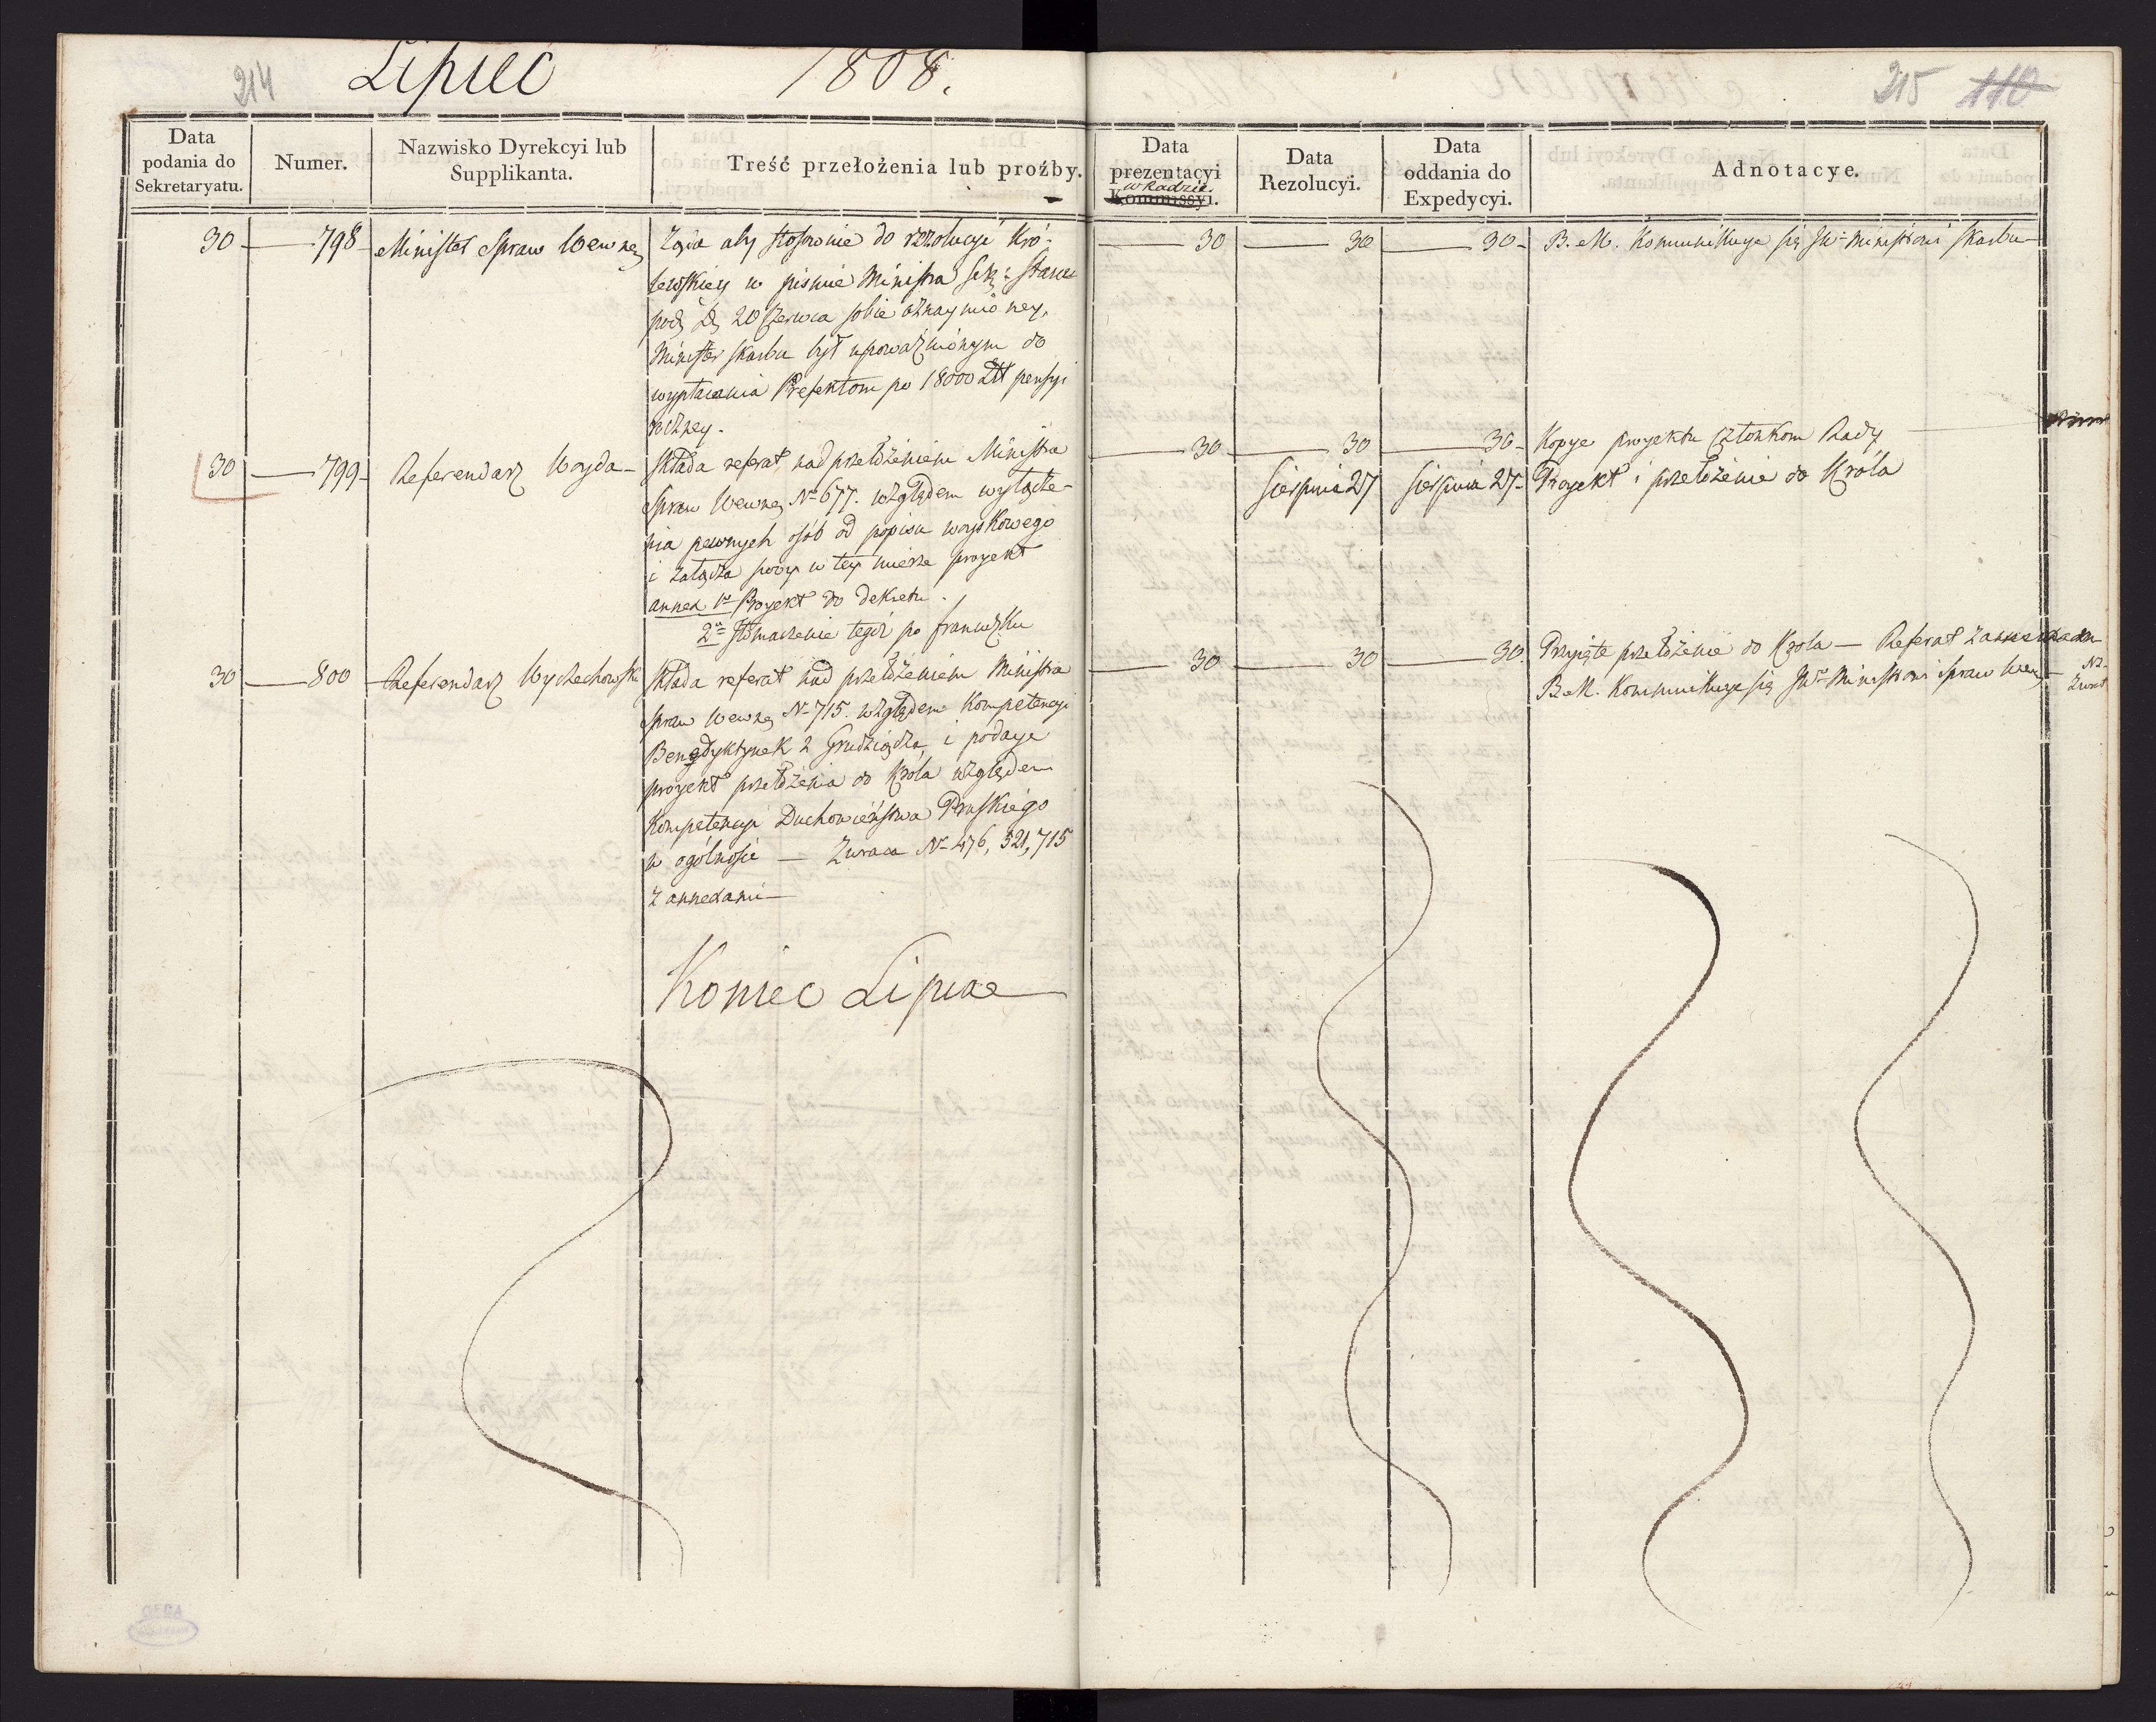 214
Lipiec 1808.
Data podania do Sekretaryatu.
Numer.
Nazwisko Dyrekcyi lub Supplikanta.
Treść przełożenia lub proźby.
30 — 798 Minister Spraw Wewnę
Ząda aby stosownie do rezolucyi Kró-
lewskiey w piśmie Ministra Sekr: Stanu
pod D. 20 Czerwca sobie oznaymioney,
Minister skarbu był upoważnionym do
wypłacania Prefektom po 18000 Złł pensyi
roczney.
30 — 799 Referendarz Woyda
Składa referat nad przełożeniem Ministra
Spraw Wewnę No 677. względem wyłącze-
nia pewnych osób od popisu woyskowego
i załącza swóy w tey mierze proyekt
annex 1o Proyekt do dekretu.
2o tłómaczenie tegoż po francuzku
30 — 800 Referendarz Wyczechowski
Składa referat nad przełożeniem Ministra
Spraw Wewnę No 715. względem Kompetencyi
Benedyktynek z Grudziądza, i podaye
proyekt przełożenia do Króla względem
Kompetencyi Duchowieństwa Pruskiego
w ogólności — Zwraca No 476, 521, 715
z annexami
Koniec Lipca
215 110
Data prezentacyi Kommissyi.
w Radzie.
Data Rezolucyi.
Data oddania do Expedycyi.
Adnotacye.
30 — 30 — 30 B. M. Kommunikuye się JW Ministrowi Skarbu
30 — 30 — 30 Kopye proyektu Członkom Rady
Sierpnia 27 Sierpnia 27 Proyekt i przełożenie do Króla
30 — 30 — 30 Przyięte przełożenie do Króla — Referat
B. M. Kommunikuye się JW Ministrowi Spraw Wew